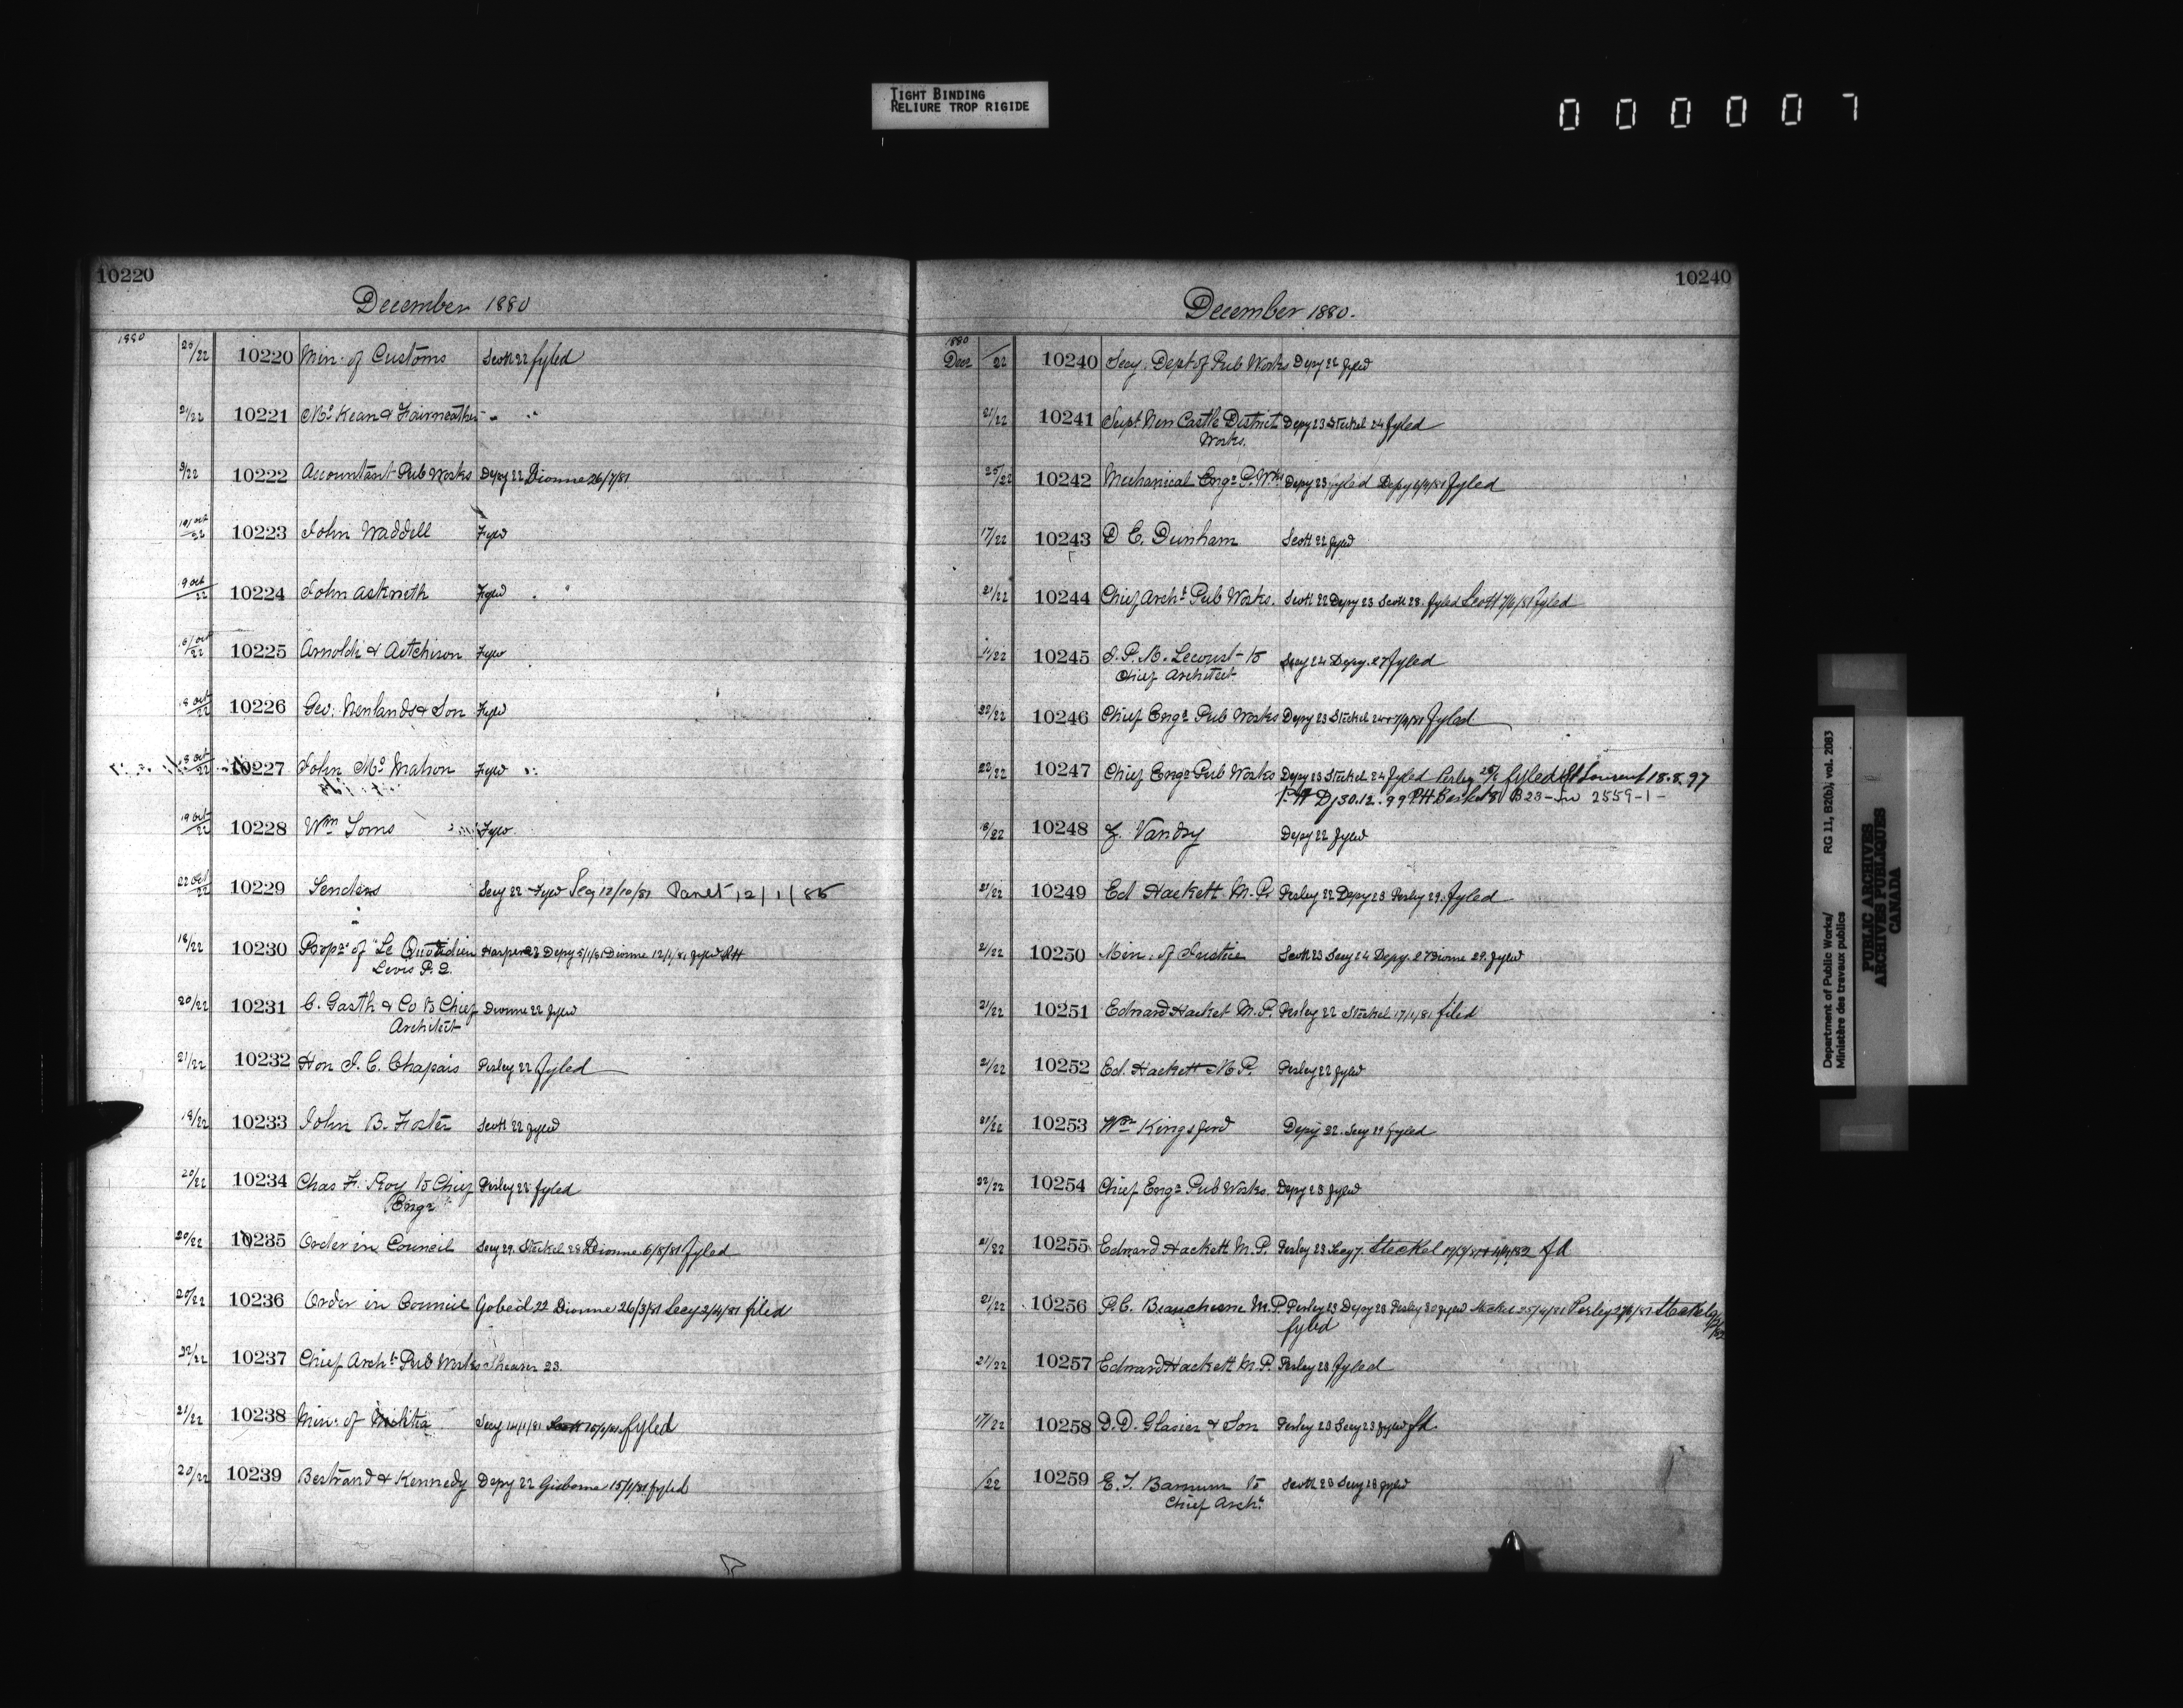 TIGHT BINDING
RELIURE TROP RIGIDE
000007
10220
December 1880
1880
20/22 10220 Min. of Customs Scott 22 fyled
21/22 10221 Mc Kean & Fairweather " "
9/22 10222 Accountant Pub Works Depy 22 Dionne 26/7/81
10223 John Waddell Fyld
9 Oct/22 10224 John Askwith Fyld
10225 Arnoldi & Aitchison Fyld
18 Oct/22 10226 Geo. Newlands & Son Fyld
18 Oct/22 10227 John Mc Mahon Fyld
19 Oct/22 10228 Wm Toms Fyld
22 Oct/22 10229 Tenders Secy 22 Fyld 12/10/81 Panet 12/1/85
18/22 10230 Propr of "Le Quotidien Harper 23 Depy 5/1/81 Dionne 12/1/81 fyld RH
Levis P.Q.
20/22 10231 C. Garth & Co to Chief Dionne 22 fyld
Architect
21/22 10232 Hon J. C. Chapais Perley 22 fyled
18/22 10233 John B. Foster Scott 22 fyled
20/22 10234 Chas F. Roy to Chief Perley 22 fyled
Engr
20/22 10235 Order in Council Secy 29. Steckel 28 Dionne 6/8/81 fyled
20/22 10236 Order in Council Gobeil 22 Dionne 26/3/81 Secy 2/4/81 filed
22/22 10237 Chief Archt Pub Works Shearer 23.
21/22 10238 Min. of Militia Secy 14/1/81 Scott fyled
20/22 10239 Bertrand & Kennedy Depy 22 Gisborne 15/1/81 fyled
10240
December 1880.
1880
Decr /22 10240 Secy. Dept of Pub Works Depy 22 fyld
21/22 10241 Supt New Castle District Depy 23 Steckel 24 fyled
Works.
20/22 10242 Mechanical Engr P. Wks Depy 23 fyled Depy fyled
17/22 10243 D E. Dunham Scott 22 fyld
21/22 10244 Chief Archt Pub Works. Scott 22 Depy 23 Scott 28. fyled Scott 7/6/81 fyled
10245 J. P. M. Lecourt to Secy 24 Depy. 27 fyled
Chief Architect
22/22 10246 Chief Engr Pub Works Depy 23 Steckel fyled
22/22 10247 Chief Engr Pub Works Depy 23 Steckel 24 fyled Perley fyled St Laurent 18.8.97
P.H Dj 30.12.99 PH Basket 81 B23 - 2559-1-
18/22 10248 Z. Vandry Depy 22 fyled
21/22 10249 Ed Hackett M.P. Perley 22 Depy 23 Perley 29. fyled
21/22 10250 Min. of Justice Scott 23 Secy 24 Depy. 27 Dionne 29. fyled
21/22 10251 Edward Hacket M.P. Perley 22 Steckel 17/1/81 filed
21/22 10252 Ed. Hackett M.P. Perley 22 fyld
21/22 10253 Wm Kingsford Depy 22. Secy 19 fyled
22/22 10254 Chief Engr Pub Works. Depy 23 fyled
21/22 10255 Edward Hackett M.P. Perley 23 Secy 7. Steckel fd
21/22 10256 P.C. Beauchesne M.P. Perley 23 Depy 28 Perley 30 fyled Steckel 25/4/81 Perley 27/6/81 Steckel
fyled
21/22 10257 Edward Hackett M.P. Perley 23 fyled
17/22 10258 D.D. Glasier & Son Perley 23 Secy 23 fyled fd.
/22 10259 E.T. Barnum to Scott 23 Secy 28 fyled
Chief Archt
Department of Public Works/ RG 11, B2(b), vol. 2083
Ministère des travaux publics
PUBLIC ARCHIVES
ARCHIVES PUBLIQUES
CANADA